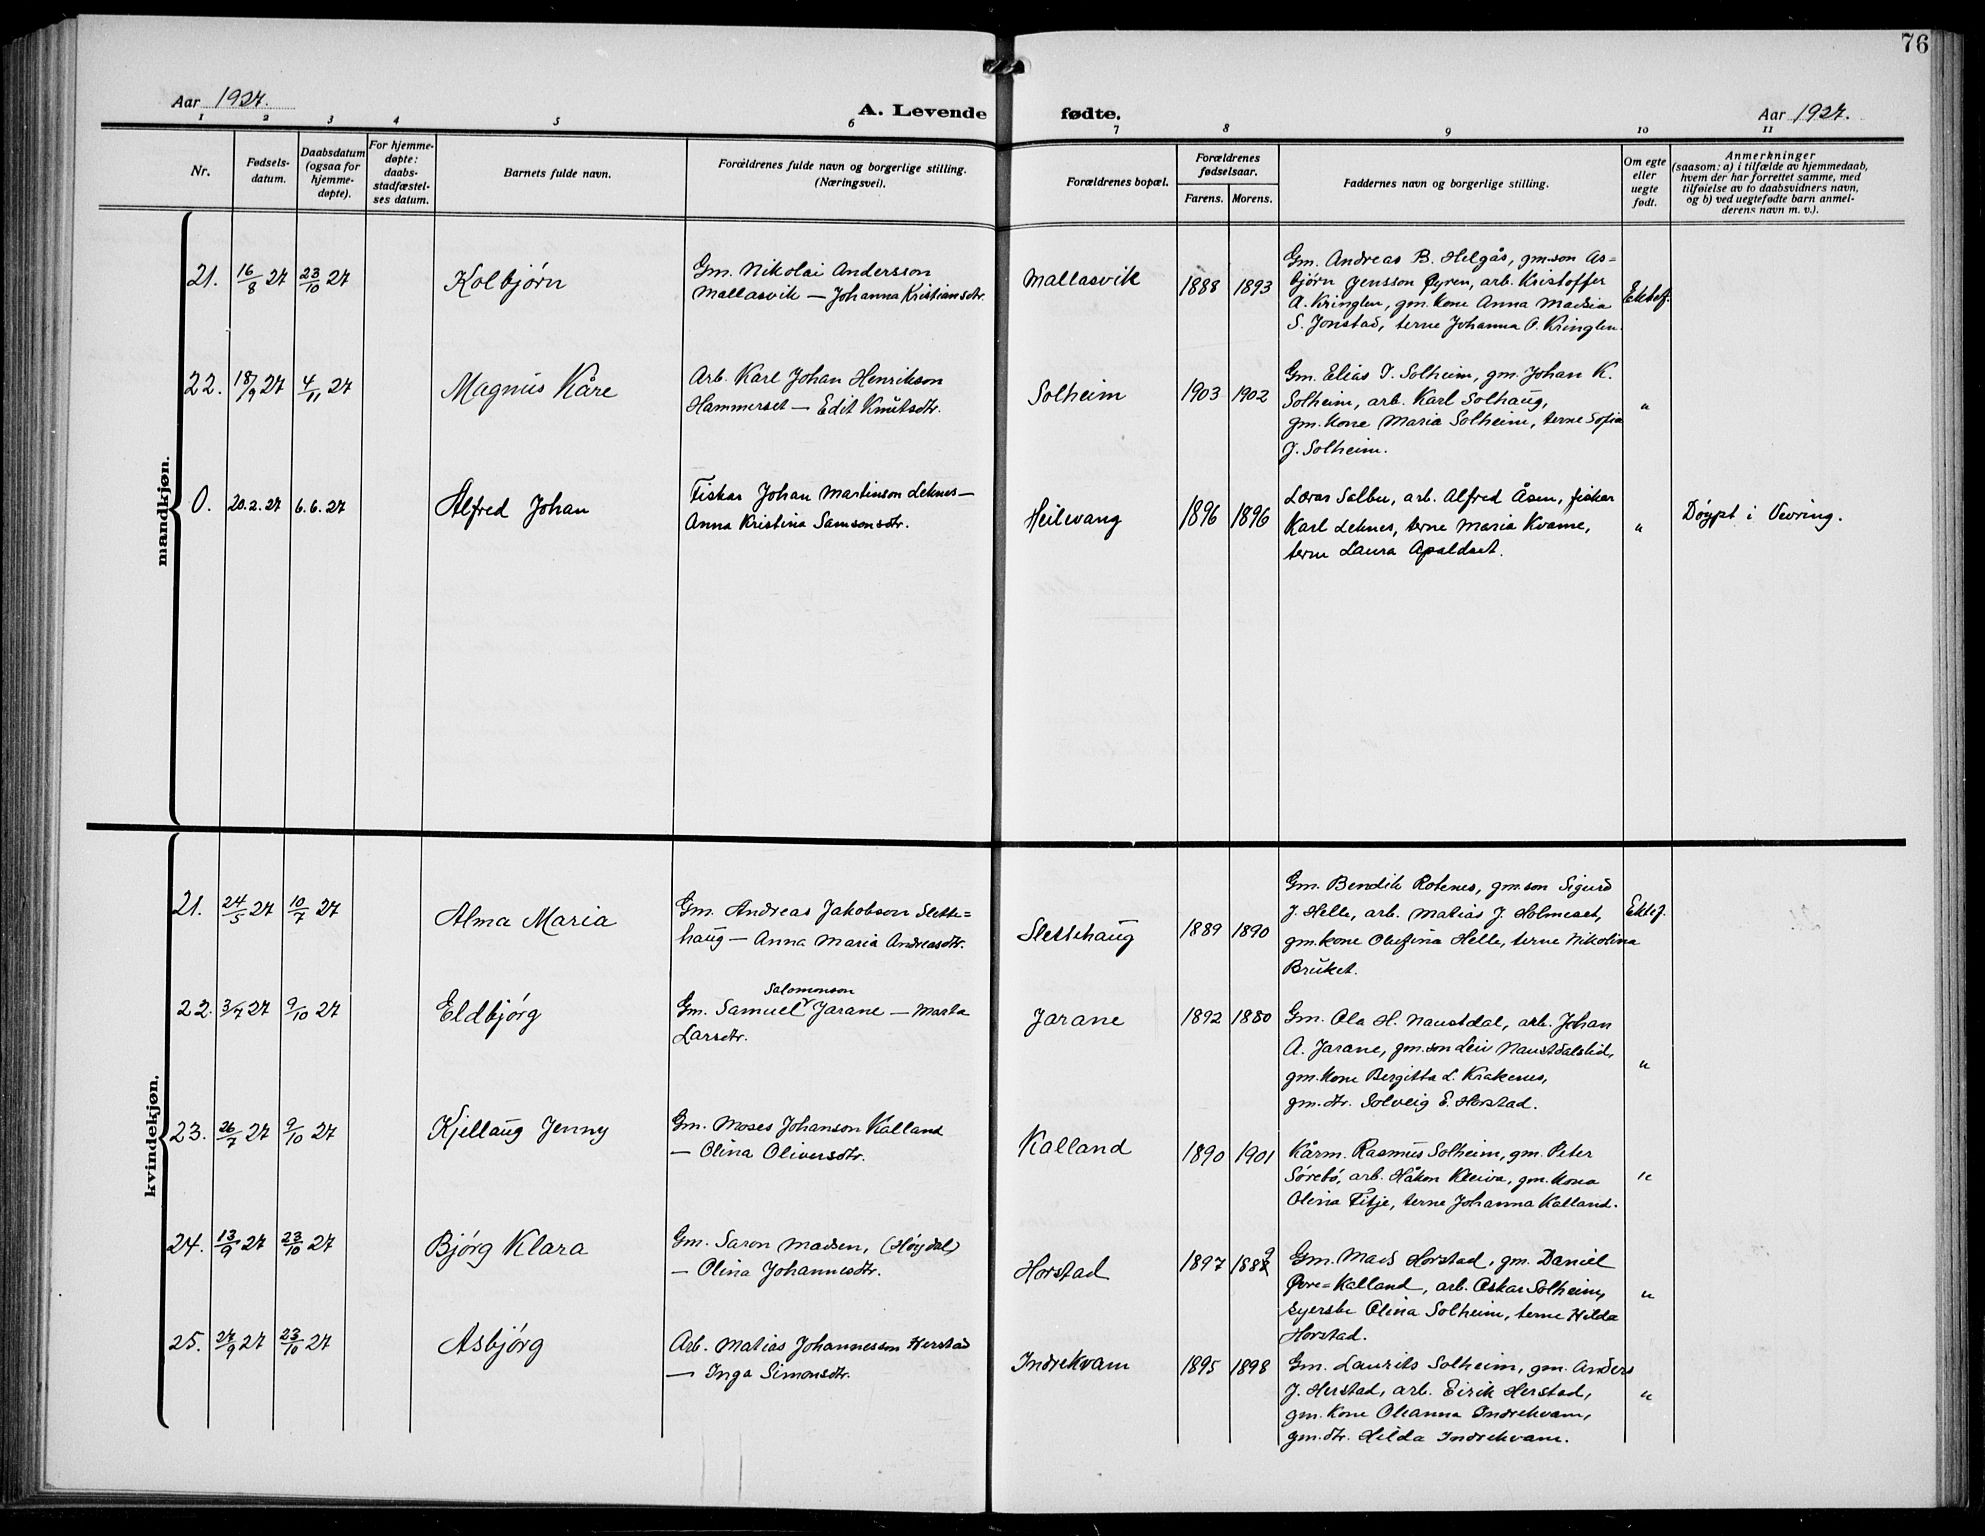 76
Aar 1927.
A. Levende fødte.
Aar 1927.
1 2 3 4 5 6 7 8 9 10 11
Nr.
Fødsels-
datum.
Daabsdatum
(ogsaa for
hjemme-
døpte).
For hjemme-
døpte:
daabs-
stadfæstel-
ses datum.
Barnets fulde navn.
Forældrenes fulde navn og borgerlige stilling.
(Næringsvei).
Forældrenes bopæl.
Forældrenes
fødselsaar.
Farens. Morens.
Faddernes navn og borgerlige stilling.
Om egte
eller
uegte
født.
Anmerkninger
(saasom: a) i tilfælde av hjemmedaab,
hvem der har forrettet samme, med
tilføielse av to daabsvidners navn,
og b) ved uegtefødte barn anmel-
derens navn m. v.).
mandkjøn.
21. 16/8 27 23/10 27 Kolbjørn
Gm. Nikolai Andersson
Mallasvik — Johanna Kristiansdtr.
Mallasvik 1888 1893
Gm. Andreas B. Helgås, gm.son As=
bjørn Jensson Øyren, arb. Kristoffer
A. Kringlen, gm. kone Anna
S. Jonstad, terne Johanna O. Kringlen.
Ektef.
22. 18/9 27 4/11 27 Magnus Kåre
Arb. Karl Johan Henrikson
Hammerset — Edit Knutsdtr.
Solheim 1903 1902
Gm. Elias J. Solheim, gm. Johan K.
Solheim, arb. Karl Solhaug,
gm. kone Maria Solheim, terne Sofia
J. Solheim.
"
0. 20.2.27 6.6.27 Alfred Johan
Fiskar Johan Martinson Leknes —
Anna Kristina Samsonsdtr.
Heilevang 1896 1896
Lærar Salbu, arb. Alfred Åsen, fiskar
Karl Leknes, terne Maria Kvame,
terne Laura Apaldset.
"
Døypt i Vevring.
kvindekjøn.
21. 24/5 27 10/7 27 Alma Maria
Gm. Andreas Jakobson Slette=
haug — Anna Maria Andreasdtr.
Slettehaug 1889 1890
Gm. Bendik Rotenes, gm.son Sigurd
J. Helle, arb. Matias J. Holmeset,
gm. kone Olufina Helle, terne Nikolina
Bruket.
Ektef.
22. 3/7 27 9/10 27 Eldbjørg
Salomonson
Gm. Samuel Jarane — Marta
Larsdtr.
Jarane 1892 1880
Gm. Ola H. Naustdal, arb. Johan
A. Jarane, gm.son Leiv Naustdalslid,
gm. kone Bergitta L. Krakenes,
gm. dtr. Solveig E. Horstad.
"
23. 26/7 27 9/10 27 Kjellaug Jenny
Gm. Moses Johanson Kalland
— Olina Oliversdtr.
Kalland 1890 1901
Kårm. Rasmus Solheim, gm. Peter
Sørebø, arb. Håkon Kleiva, gm. kona
Olina Fitje, terne Johanna Kalland.
"
24. 13/9 27 23/10 27 Bjørg Klara
Gm. Saron Madsen, (Høydal)
— Olina Johannesdtr.
Horstad 1897 1889
Gm. Mads Horstad, gm. Daniel
Øvre=Kalland, arb. Oskar Solheim,
syerske Olina Solheim, terne Hilda
Horstad.
"
25. 27/9 27 23/10 27 Asbjørg
Arb. Matias Johannesson Herstad
— Inga Simonsdtr.
Indrekvam 1895 1898
Gm. Laurits Solheim, gm. Anders
J. Herstad, arb. Eirik Herstad,
gm. kone Oleanna Indrekvam,
gm. dtr. Hilda Indrekvam.
"